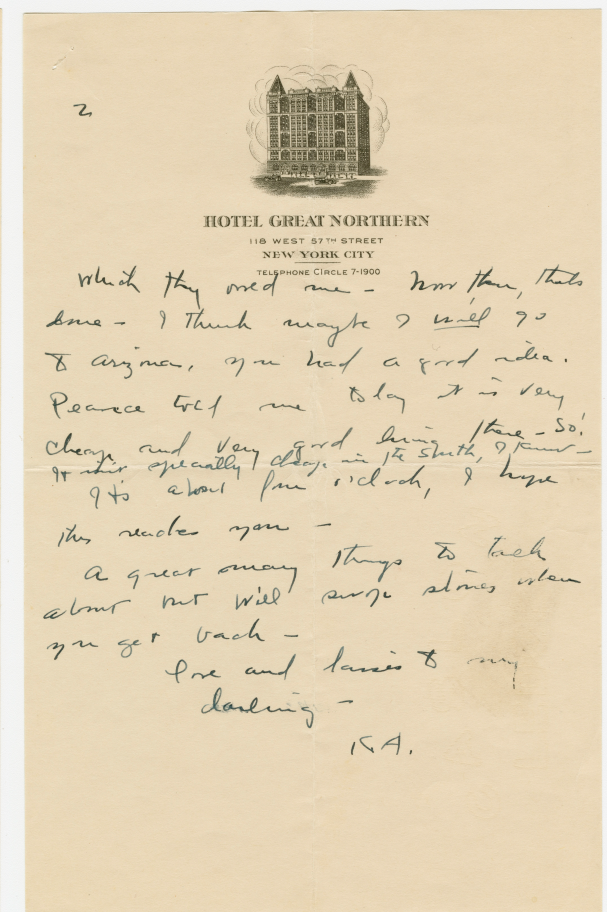 2
HOTEL GREAT NORTHERN
118 WEST 57TH STREET
NEW YORK CITY
TELEPHONE CIRCLE 7-1900
which they owed me – Now then, thats
done – I think maybe I will go
to Arizona, you had a good idea.
Pearce told me today it is very
cheap and very good living there – So!
It isn't specially cheap in the South, I know –
It's about five o'clock, I hope
this reaches you –
A great many things to talk
about but will swap stories when
you get back –
Love and kisses to my
darling –
K A.